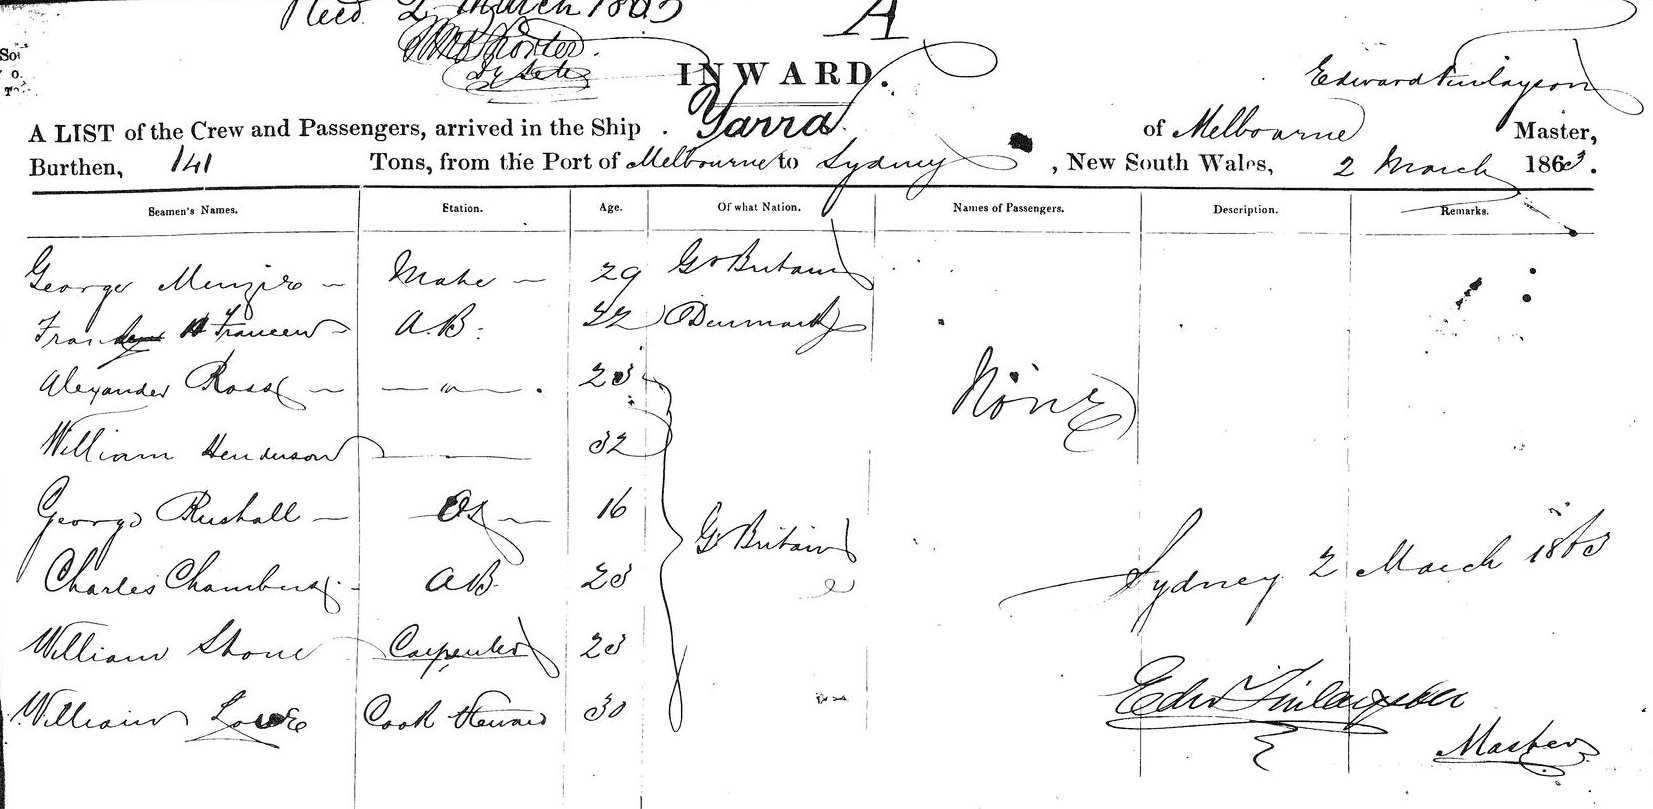 Recd. 2 March 1863
A
INWARD.
Edward Finlayson
A LIST of the Crew and Passengers, arrived in the Ship Yarra of Melbourne Master,
Burthen, 141 Tons, from the Port of Melbourne to Sydney, New South Wales, 2 March 1863.
Seamen's Names. Station. Age. Of what Nation. Names of Passengers. Description. Remarks.
George Menzies Mate 29 Gt Britain
A.B. 22 Denmark
Alexander Ross — " — 23
None
William Henderson 32
George Rushall OS 16
Gt Britain
Sydney 2 March 1863
Charles Chambers AB 23
William Stone Carpenter 23
Edw Finlayson
William Cook Steward 30
Master